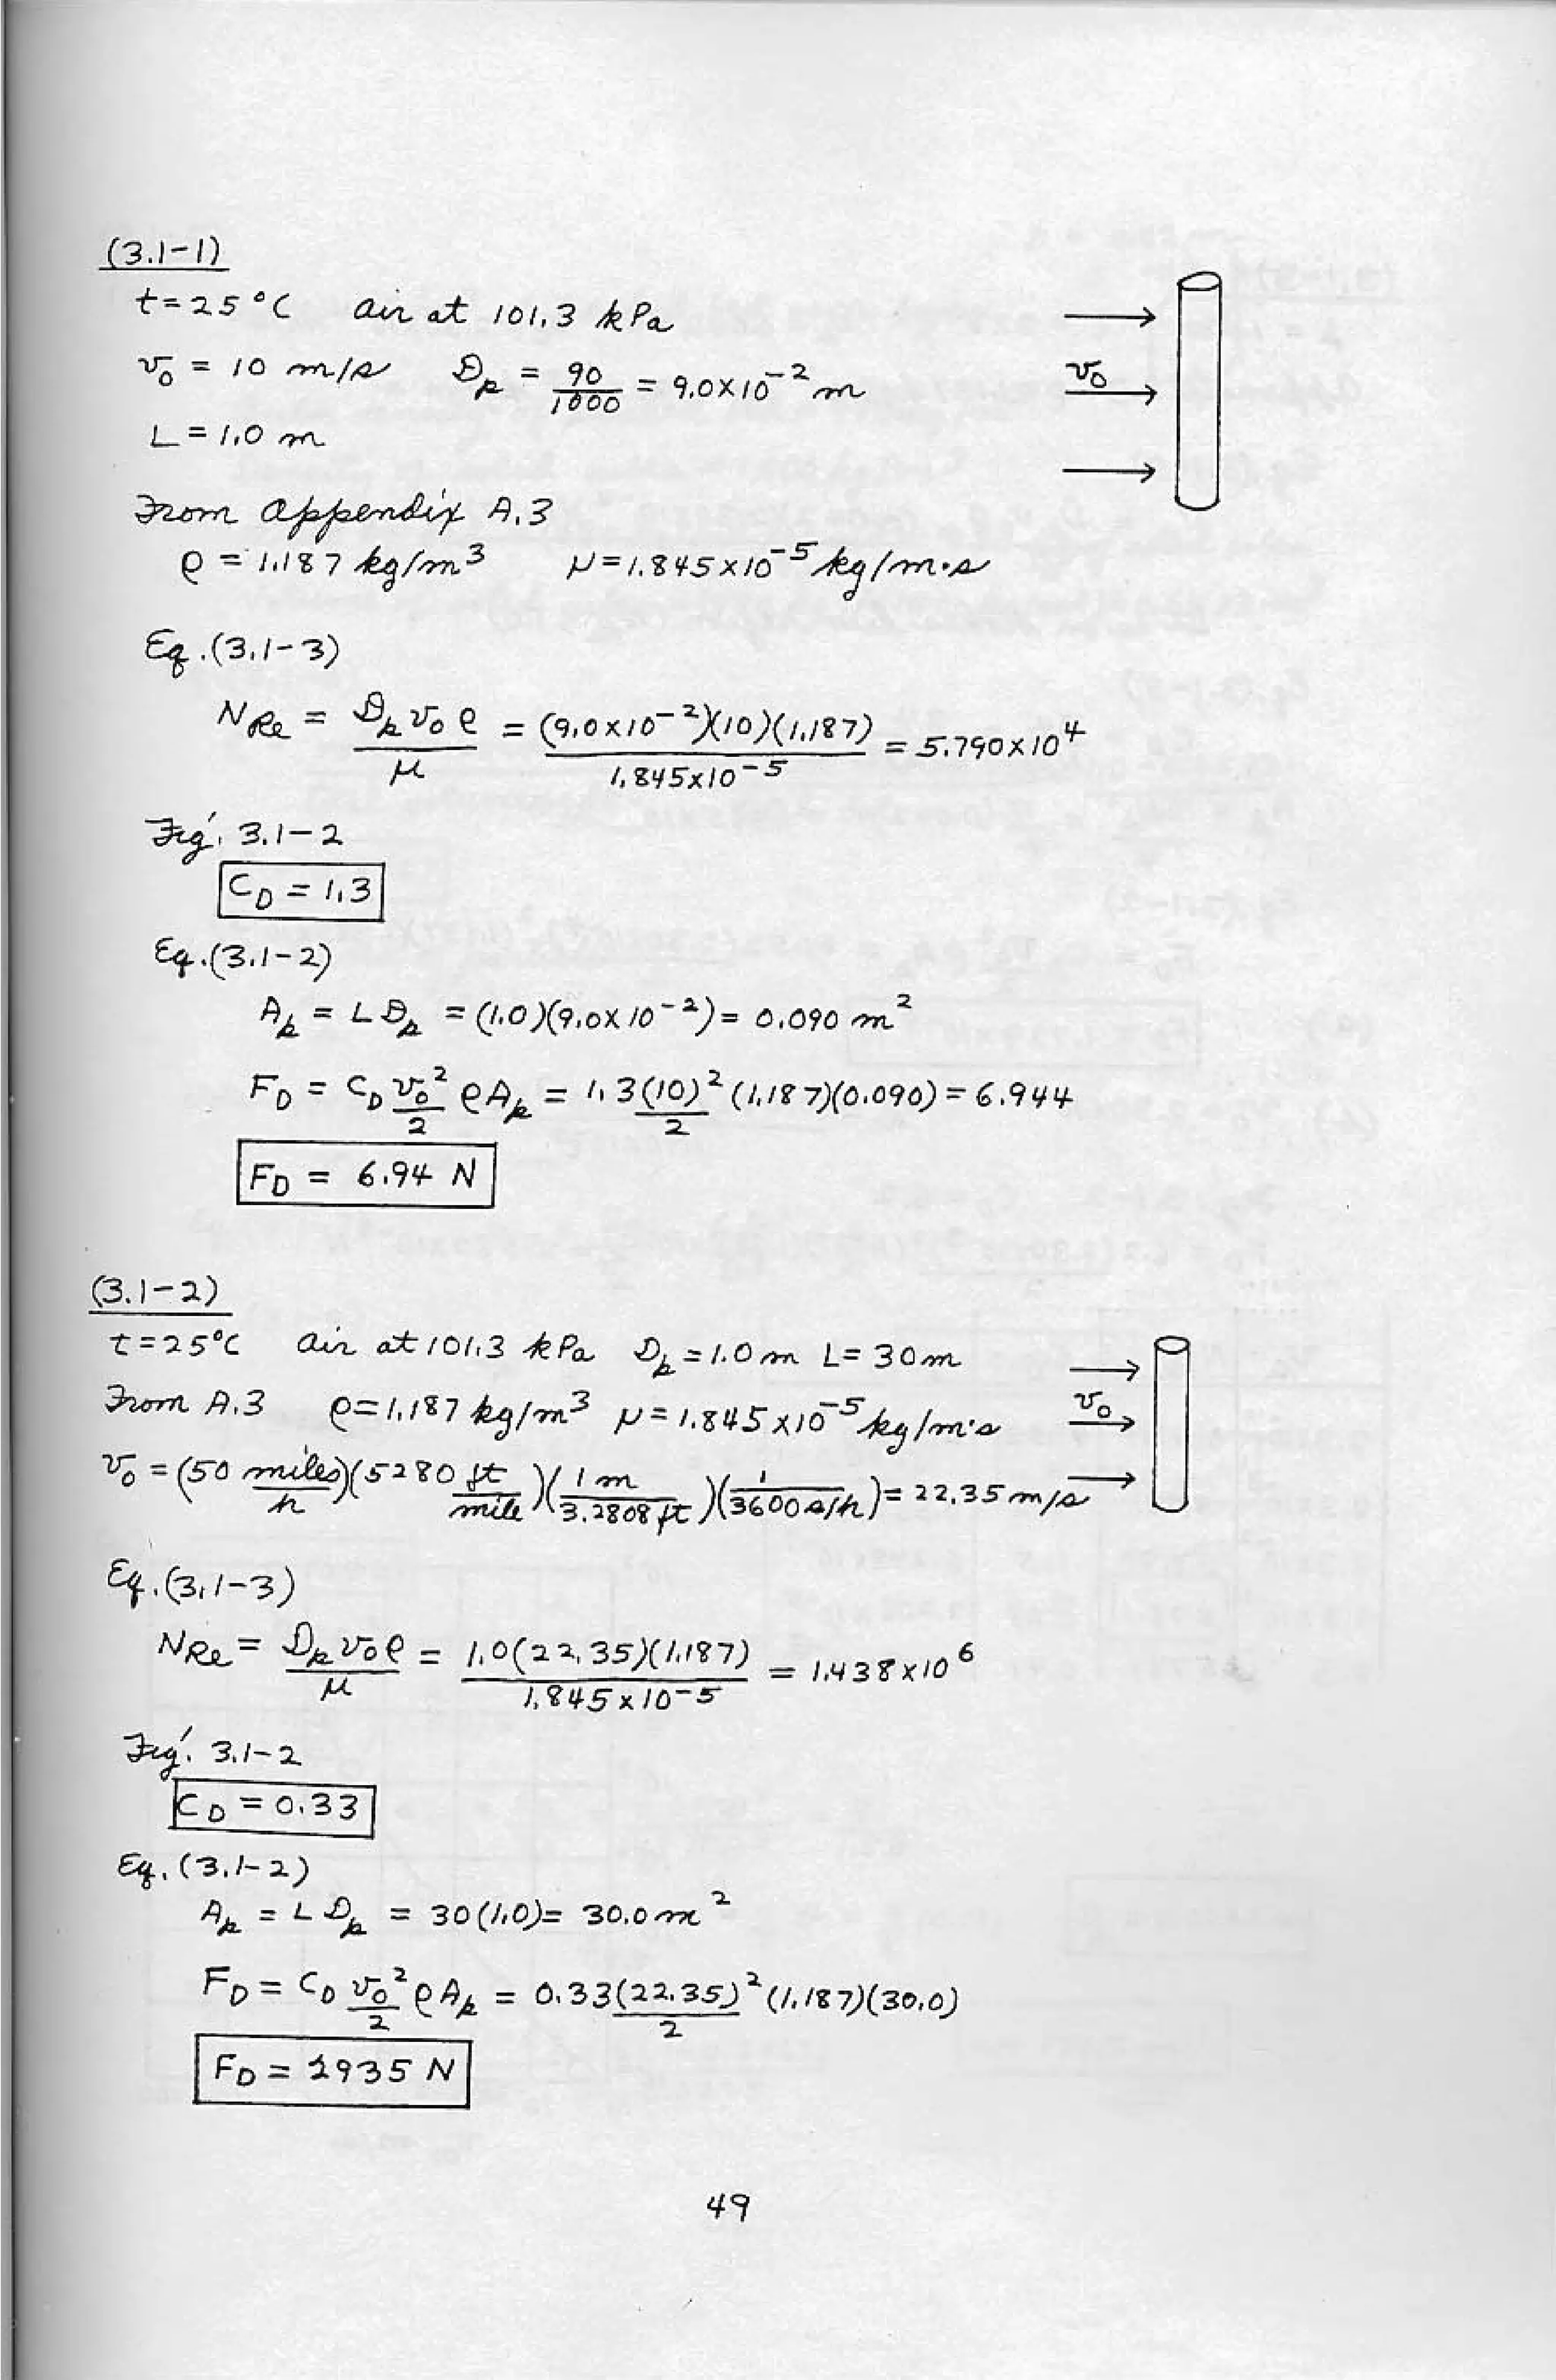 (3.1-1)
t = 25 °C air at 101.3 kPa
v₀ = 10 m/s Dₚ = 90/1000 = 9.0×10⁻² m
v₀
L = 1.0 m
From Appendix A.3
ρ = 1.187 kg/m³ μ = 1.845×10⁻⁵ kg/m·s
Eq.(3.1-3)
N_Re = Dₚv₀ρ/μ = (9.0×10⁻²)(10)(1.187)/1.845×10⁻⁵ = 5.790×10⁴
Fig. 3.1-2
C_D = 1.3
Eq.(3.1-2)
Aₚ = L Dₚ = (1.0)(9.0×10⁻²) = 0.090 m²
F_D = C_D v₀²/2 ρAₚ = 1.3(10)²/2 (1.187)(0.090) = 6.944
F_D = 6.94 N
(3.1-2)
t = 25°C air at 101.3 kPa Dₚ = 1.0 m L = 30 m
From A.3 ρ = 1.187 kg/m³ μ = 1.845×10⁻⁵ kg/m·s
v₀
v₀ = (50 miles/h)(5280 ft/mile)(1 m/3.2808 ft)(1/3600 s/h) = 22.35 m/s
Eq.(3.1-3)
N_Re = Dₚv₀ρ/μ = 1.0(22.35)(1.187)/1.845×10⁻⁵ = 1.438×10⁶
Fig. 3.1-2
C_D = 0.33
Eq.(3.1-2)
Aₚ = L Dₚ = 30(1.0) = 30.0 m²
F_D = C_D v₀²/2 ρAₚ = 0.33(22.35)²/2 (1.187)(30.0)
F_D = 2935 N
49